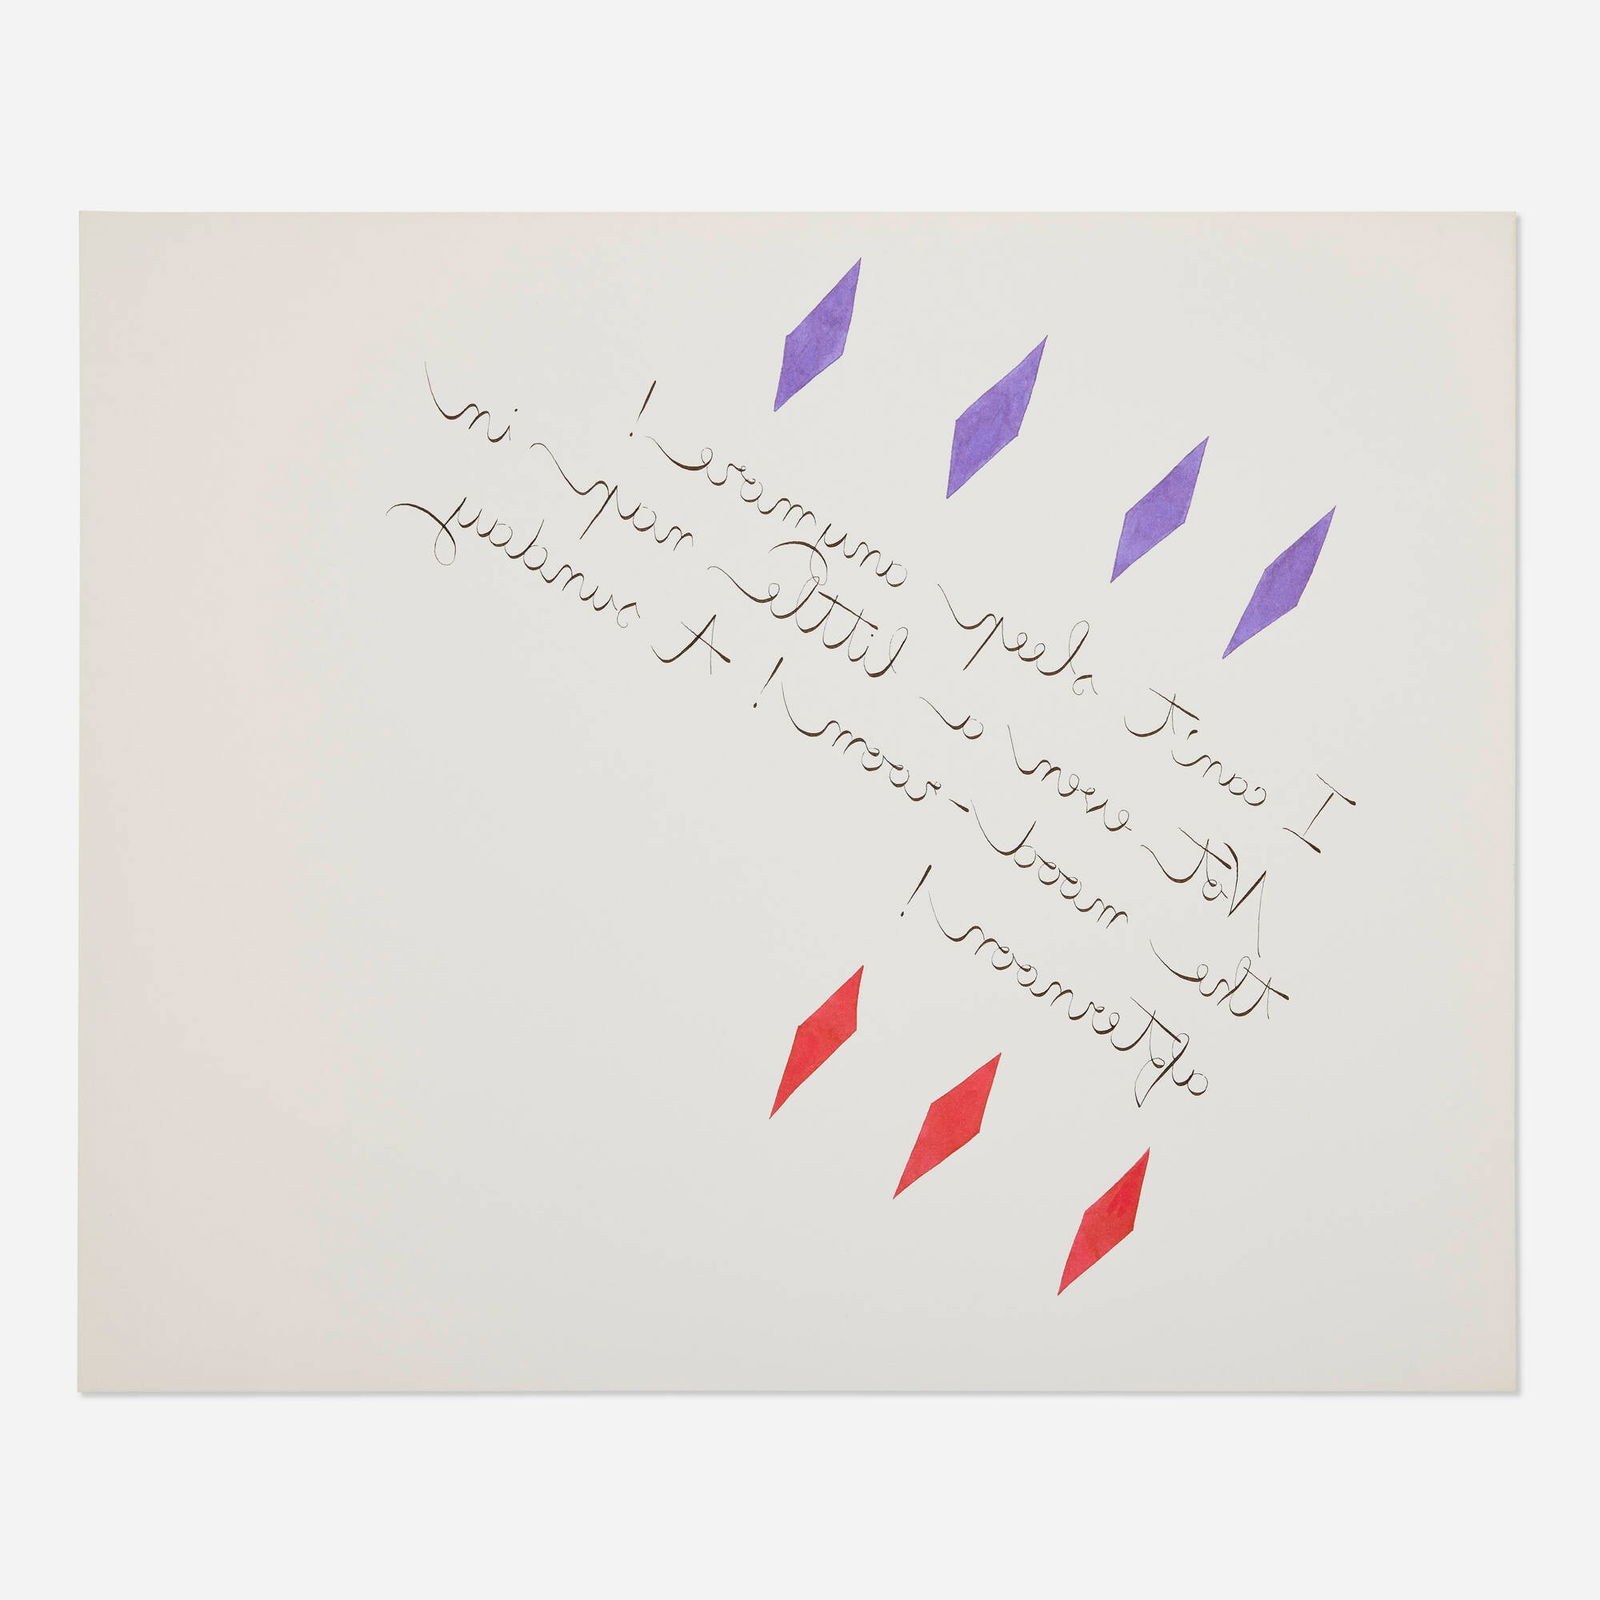 I can't sleep anymore!
Not even a little nap in
the mood-room! A sunday
afternoon!